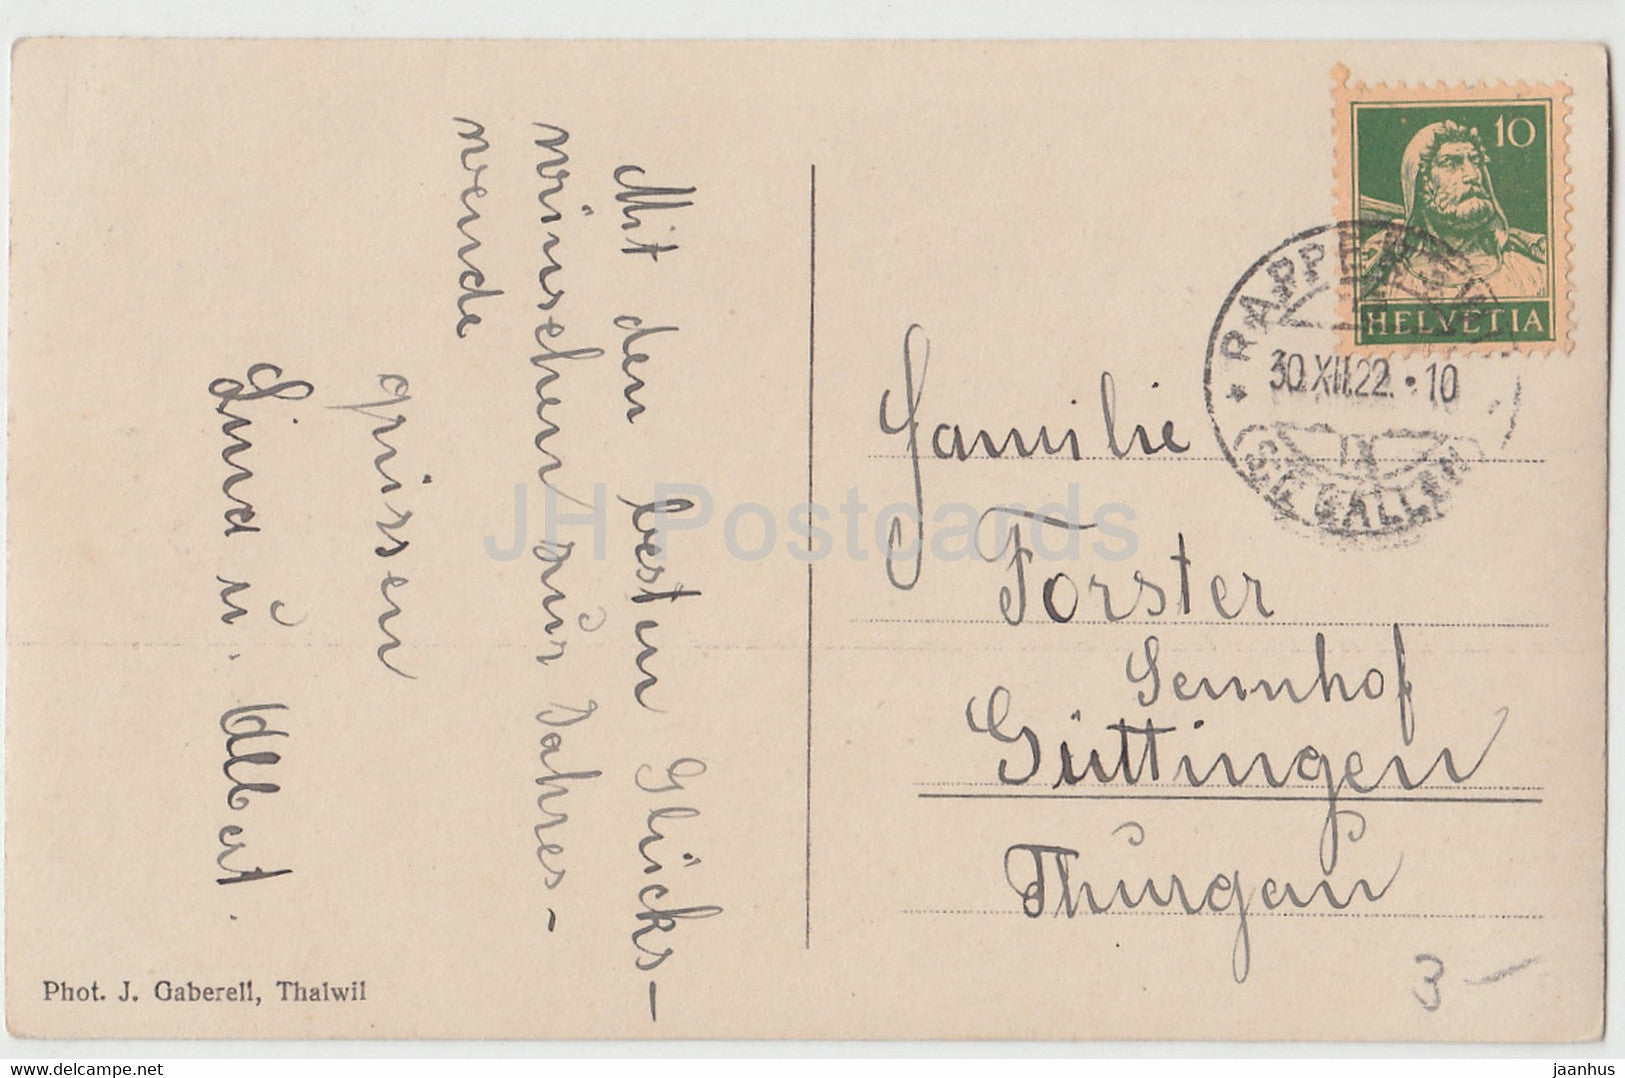 Mit den besten Glücks-
wünschen zur Jahres-
wende
grüssen
Lina u. Albert.
Familie
Forster
Sennhof
Güttingen
Thurgau
10
HELVETIA
30.XII.22.·10
IX
(ST. GALLEN)
3 –
Phot. J. Gaberell, Thalwil
JH Postcards
www.delcampe.net
jaanhus